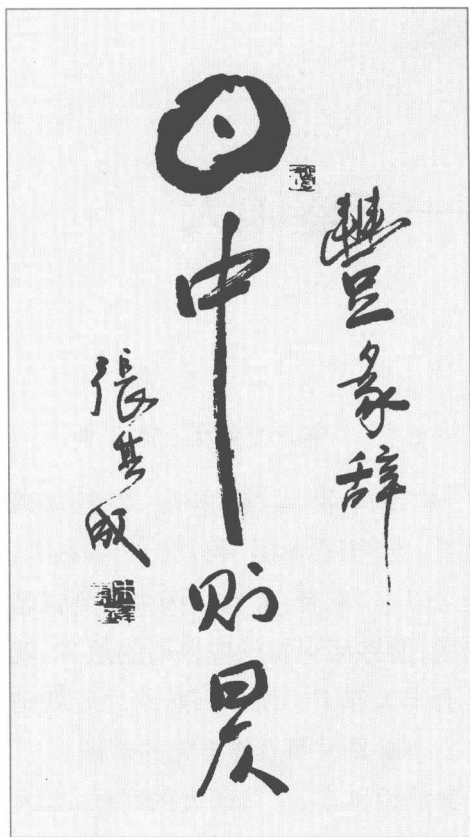 豐彖辞
日中则昃
張其成